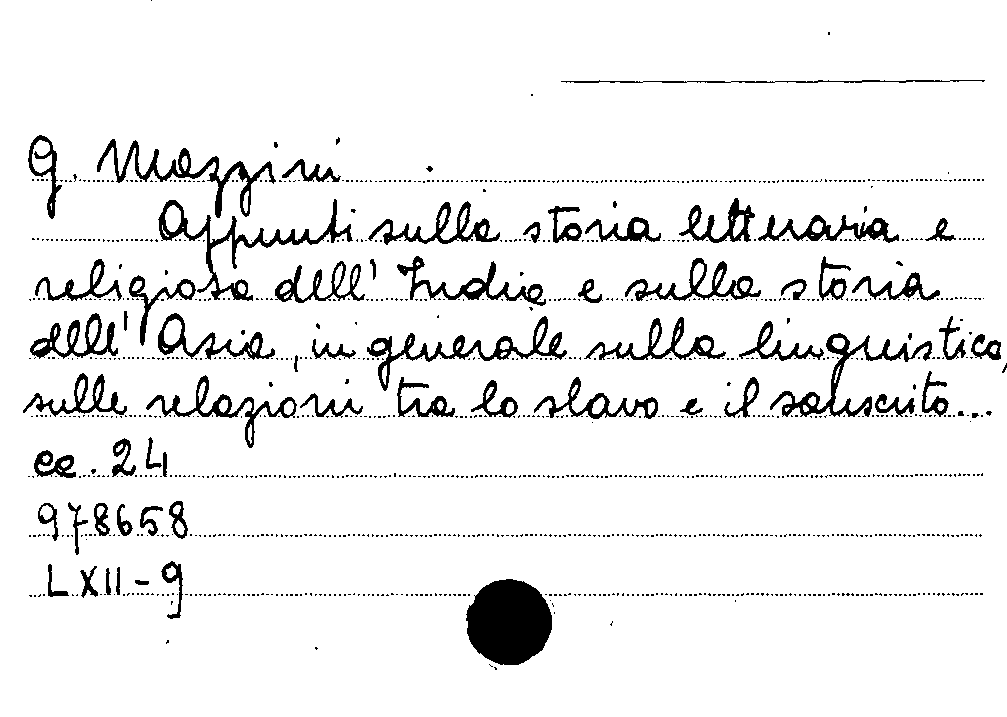 G. Mazzini
Appunti sulla storia letteraria e
religiosa dell' India e sulla storia
dell' Asia, in generale sulla linguistica,
sulle relazioni tra lo slavo e il sanscrito...
cc. 24
978658
LXII-9